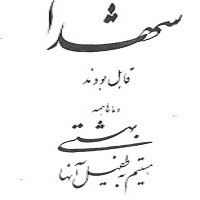 شهدا
قابل بودند
و ما همه
بهشتی
هستیم به طفیل آنها